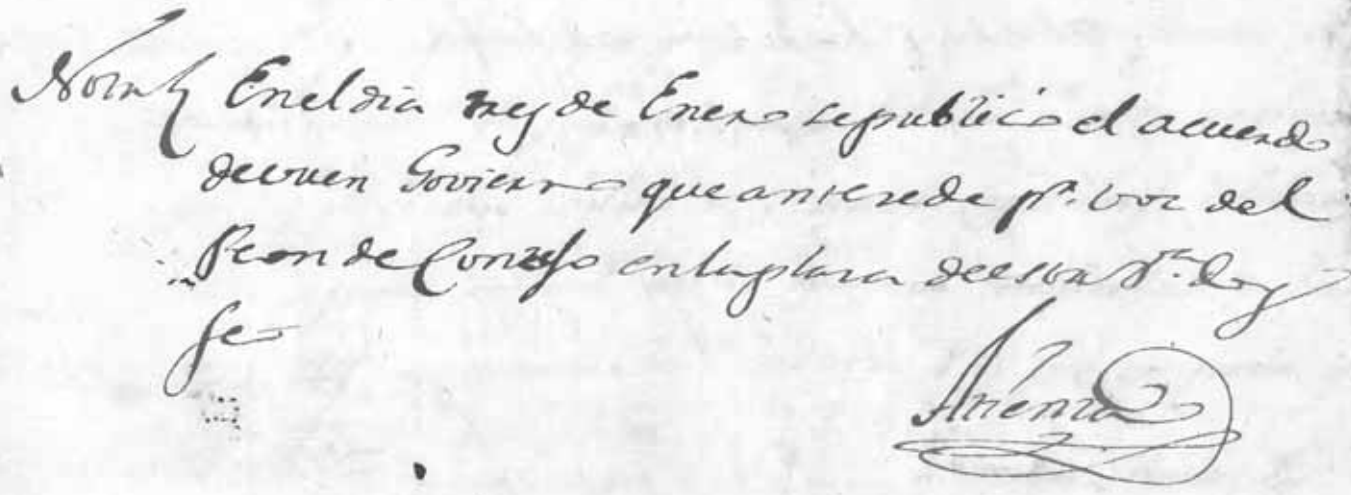 Nota En el dia tres de Enero se publico el acuerdo
de vuen Govierno que antesede pr. voz del
Peon de Consejo en la plasa de esta Va. doy
fe
Atienza